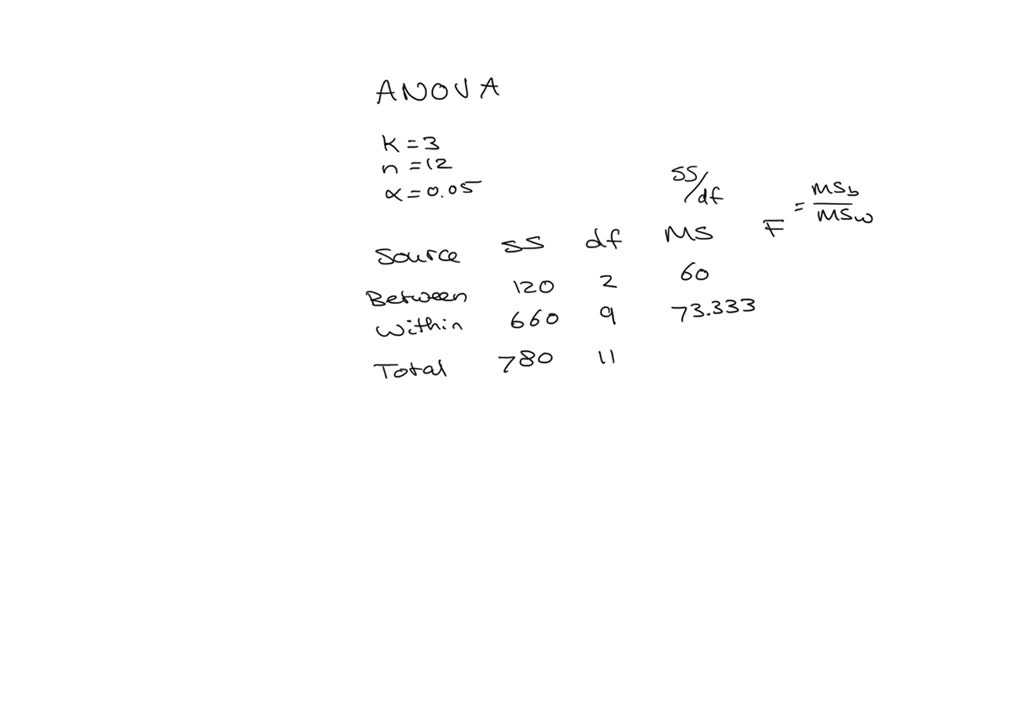 ANOVA
K = 3
n = 12
α = 0.05
SS/df
Source SS df MS F = MSb/MSw
Between 120 2 60
Within 660 9 73.333
Total 780 11